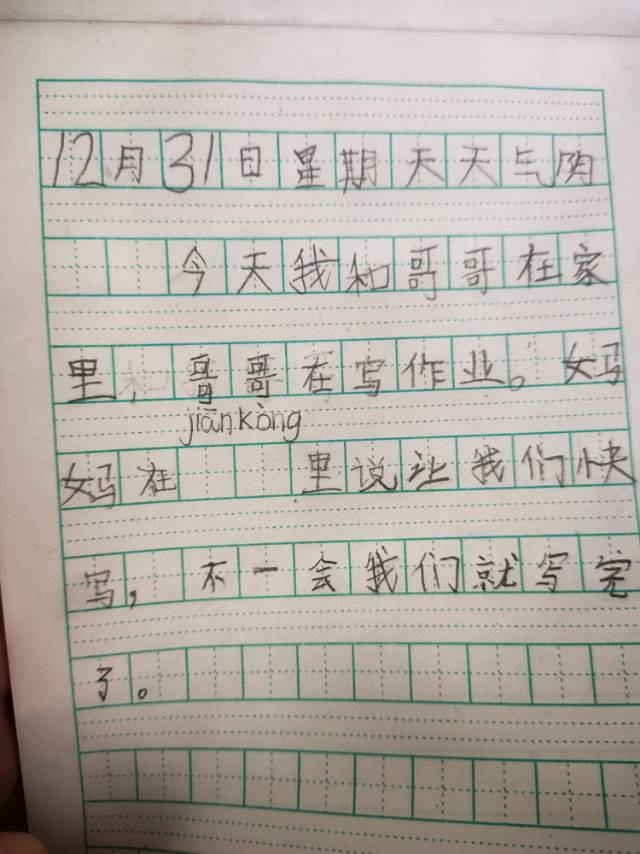 12月31日星期天天气阴
今天我和哥哥在家
里,哥哥在写作业。妈
jiānkòng
妈在 里说让我们快
写,不一会我们就写完
了。